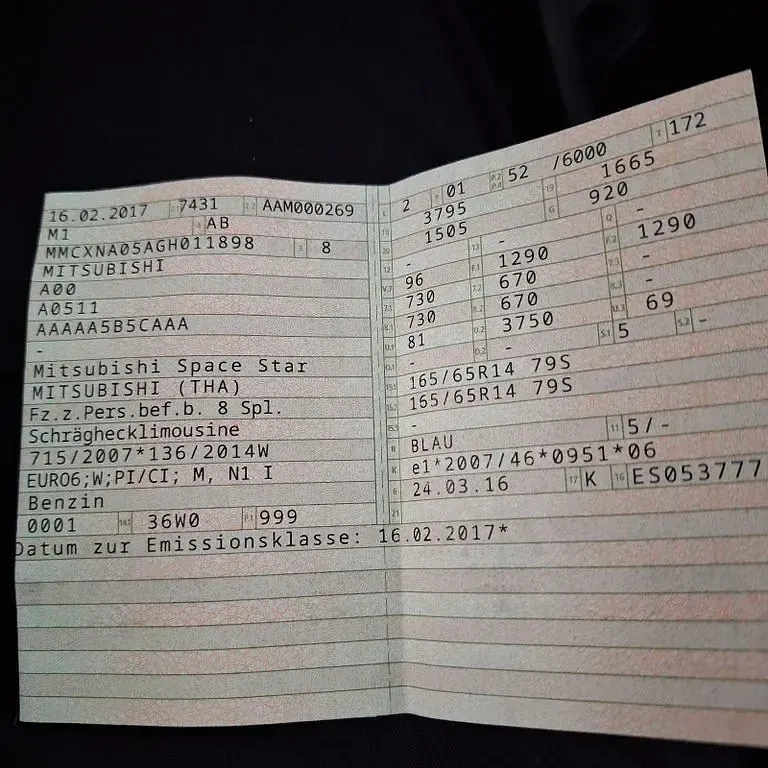 16.02.2017 7431 AAM000269
M1 AB
MMCXNA05AGH011898 8
MITSUBISHI
A00
A0511
AAAAA5B5CAAA
-
Mitsubishi Space Star
MITSUBISHI (THA)
Fz.z.Pers.bef.b. 8 Spl.
Schräghecklimousine
715/2007*136/2014W
EURO6;W;PI/CI; M, N1 I
Benzin
0001 14.1 36W0 P.1 999
Datum zur Emissionsklasse: 16.02.2017*
L 2 9 01 P.2 P.4 52 /6000 T 172
18 3795 19 1665
20 1505 G 920
12 - 13 - Q -
V.7 96 F.1 1290 F.2 1290
7.1 730 7.2 670 7.3 -
8.1 730 8.2 670 8.3 -
U.1 81 U.2 3750 U.3 69
O.1 - O.2 - S.1 5 S.2 -
15.1 165/65R14 79S
15.2 165/65R14 79S
15.3 -
R BLAU 11 5/-
K e1*2007/46*0951*06
6 24.03.16 17 K 16 ES053777
21